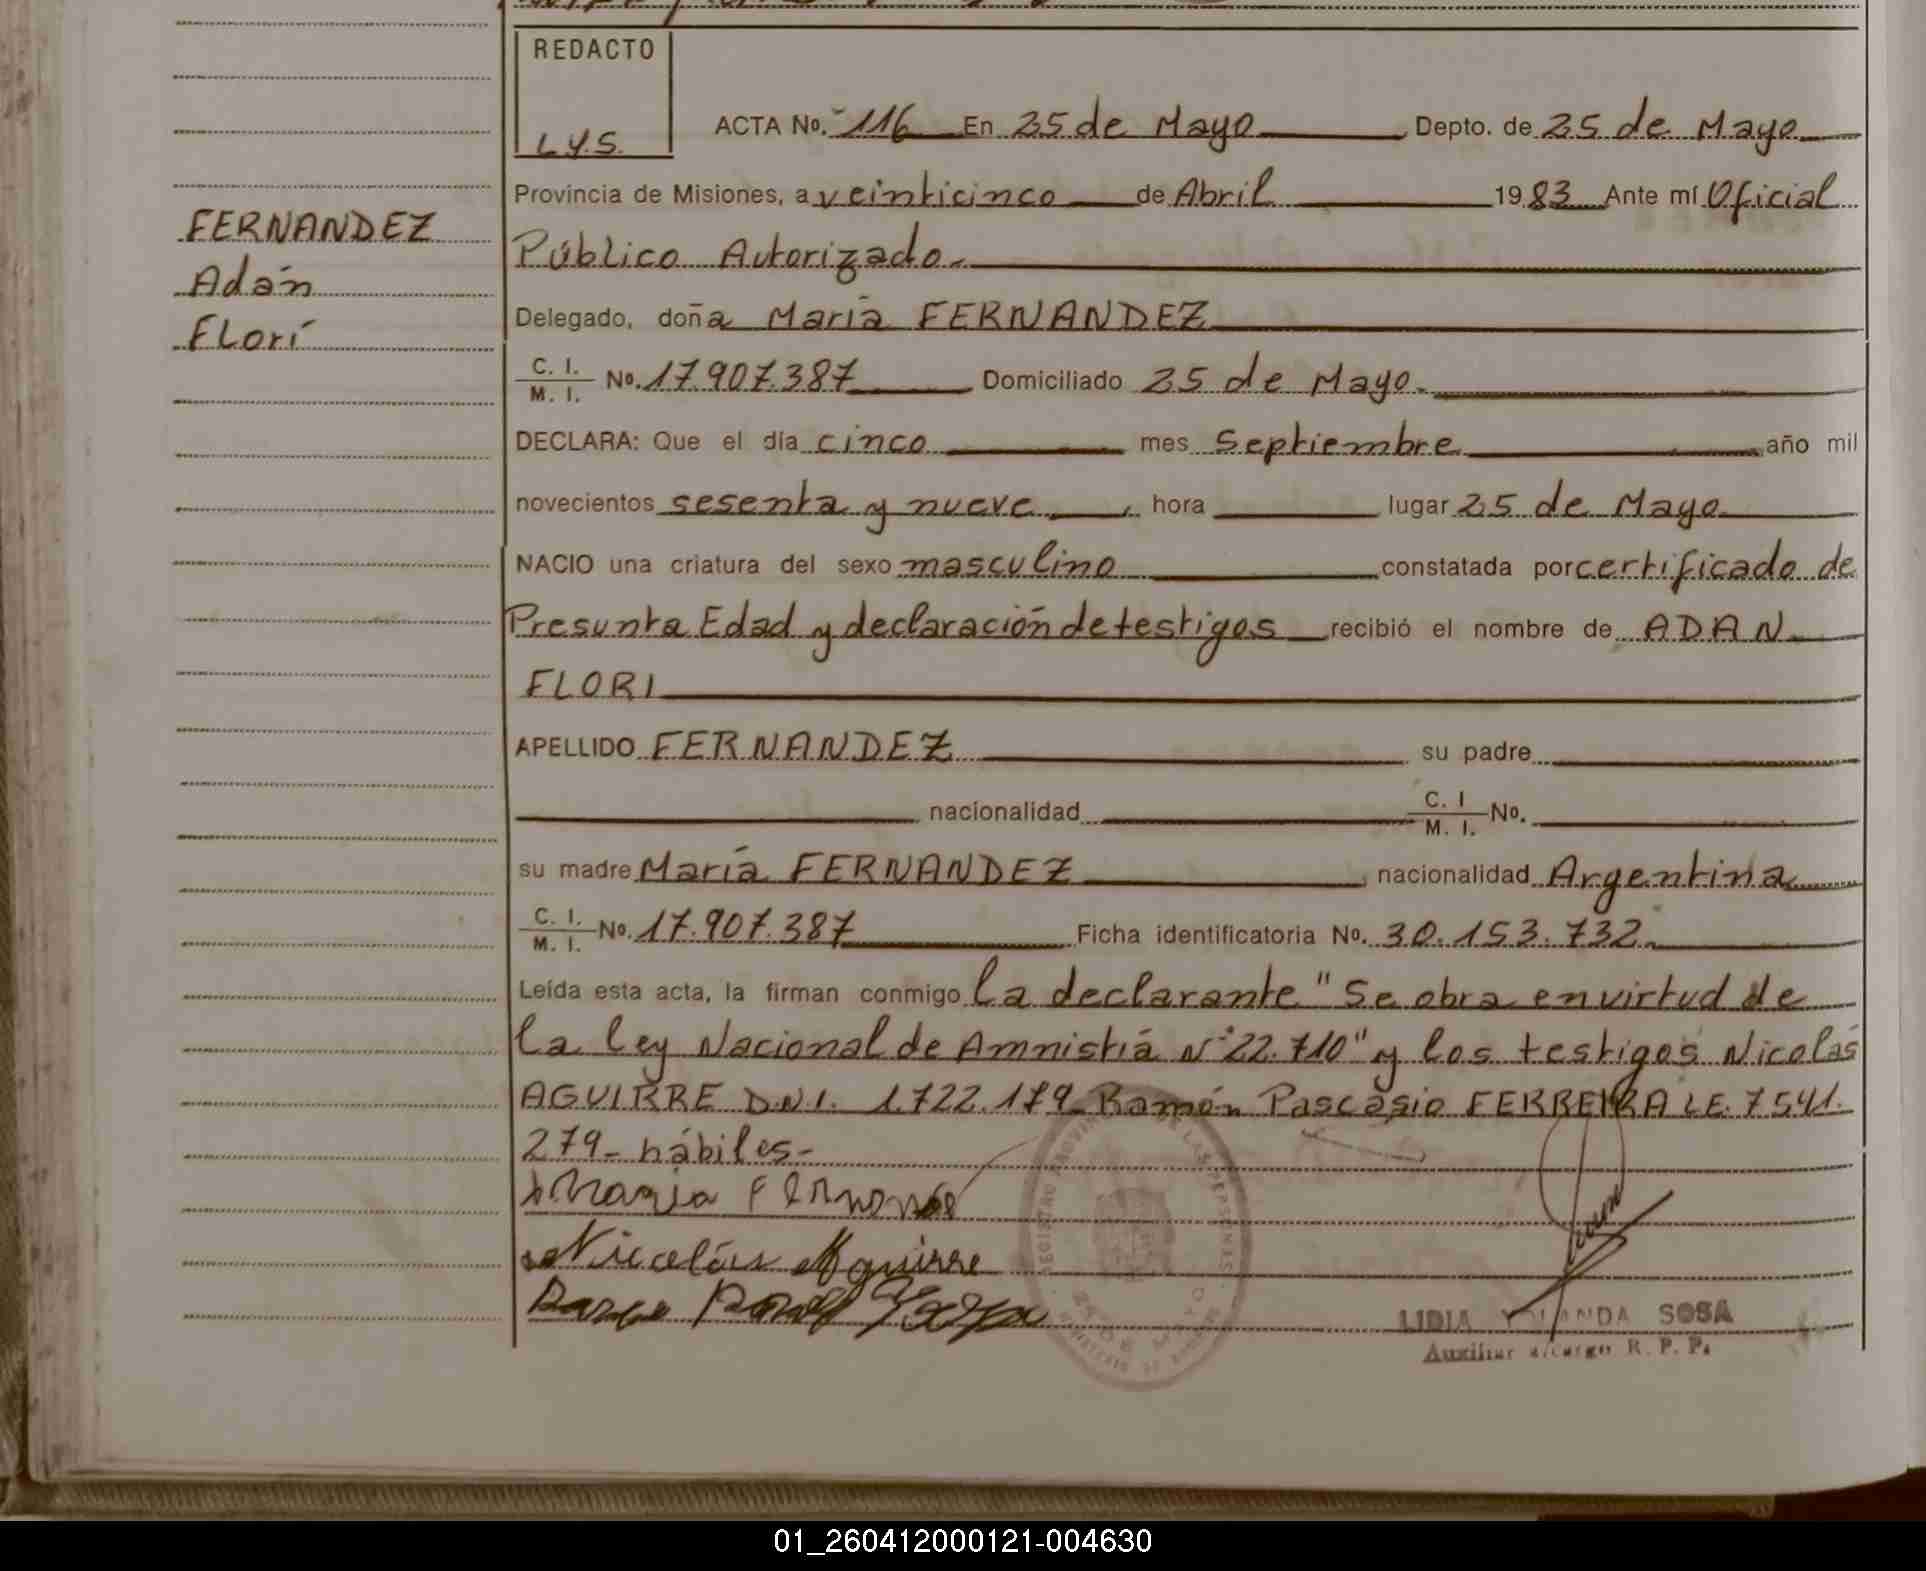 REDACTO
L.Y.S.
ACTA No. 116 En 25 de Mayo Depto. de 25 de Mayo
Provincia de Misiones, a veinticinco de Abril 1983 Ante mí Oficial
FERNANDEZ
Adán
Florí
Público Autorizado.-
Delegado, doña María FERNANDEZ
C. I. / M. I. No. 17.907.387 Domiciliado 25 de Mayo.
DECLARA: Que el día cinco mes Septiembre año mil
novecientos sesenta y nueve, hora lugar 25 de Mayo
NACIO una criatura del sexo masculino constatada por certificado de
Presunta Edad y declaración de testigos recibió el nombre de ADAN
FLORI
APELLIDO FERNANDEZ su padre
nacionalidad C. I / M. I. No.
su madre María FERNANDEZ nacionalidad Argentina
C. I. / M. I. No. 17.907.387 Ficha identificatoria No. 30.153.732.
Leída esta acta, la firman conmigo la declarante "Se obra en virtud de
la ley Nacional de Amnistiá N° 22.710" y los testigos Nicolás
AGUIRRE D.N.I. 1.722.179 Ramón Pascasio FERREIRA L.E. 7541.
279- hábiles-
Maria
Nicolás Aguirre
REGISTRO PROVINCIAL DE LAS PERSONAS
LIDIA YOLANDA SOSA
Auxiliar a/cargo R. P. P.
01_260412000121-004630